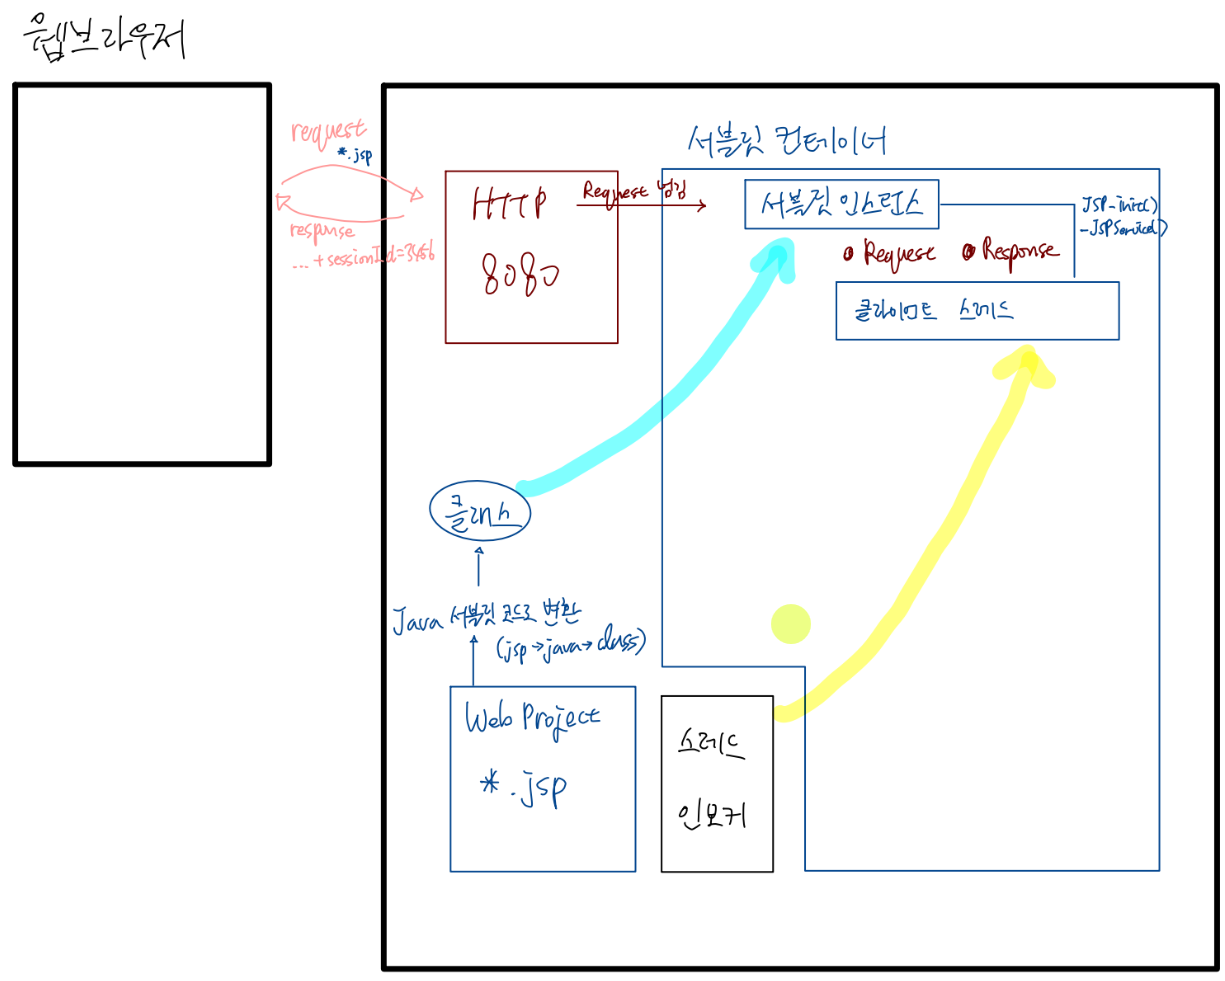 웹브라우저
request
*.jsp
response
... + sessionId=3456
HTTP
8080
Request 넘김
서블릿 컨테이너
서블릿 인스턴스
JSP-init()
-JSPService()
Request
Response
클라이언트 스레드
클래스
Java 서블릿 코드로 변환
(jsp→java→class)
Web Project
*.jsp
스레드
인보커